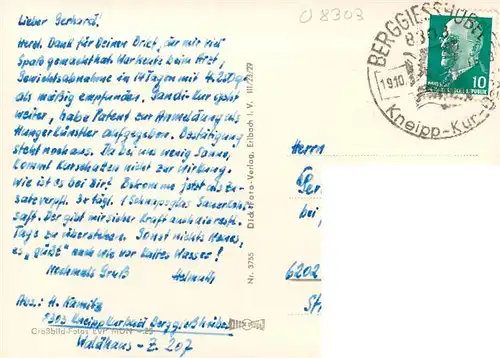 Lieber Gerhard!
Herzl. Dank für Deinen Brief, der mir viel
Spaß gemacht hat. War heute beim Arzt,
Gewichtsabnahme in 14 Tagen mit 4250g
als mäßig empfunden. Gandi-Kur geht
weiter, habe Patent zur Anmeldung als
Hungerkünstler aufgegeben. Bestätigung
steht noch aus. Da bei uns wenig Sonne,
kommt Kurschatten nicht zur Wirkung.
Wie ist es bei Dir? Bekomme jetzt als Zu-
satzverpfl. 3x tägl. 1 Schnapsglas Sauerkohl-
saft. Der gibt mir sicher Kraft auch die restl.
Tage zu überstehen. Sonst nichts Neues,
es „gießt" nach wie vor kaltes Wasser!
Nochmals Gruß Helmuth
Abs.: H. Kamitz
8303 Kneippkurbad Berggießhübel
Waldhaus - Z. 207
Großbild-Fotos EVP MDN -.25
Nr. 3755 Dick-Foto-Verlag, Erlbach i. V. III/23/29
O 8303
BERGGIESSHÜBEL
8303
19.10
Kneipp-Kur
10
Herrn
bei
6202